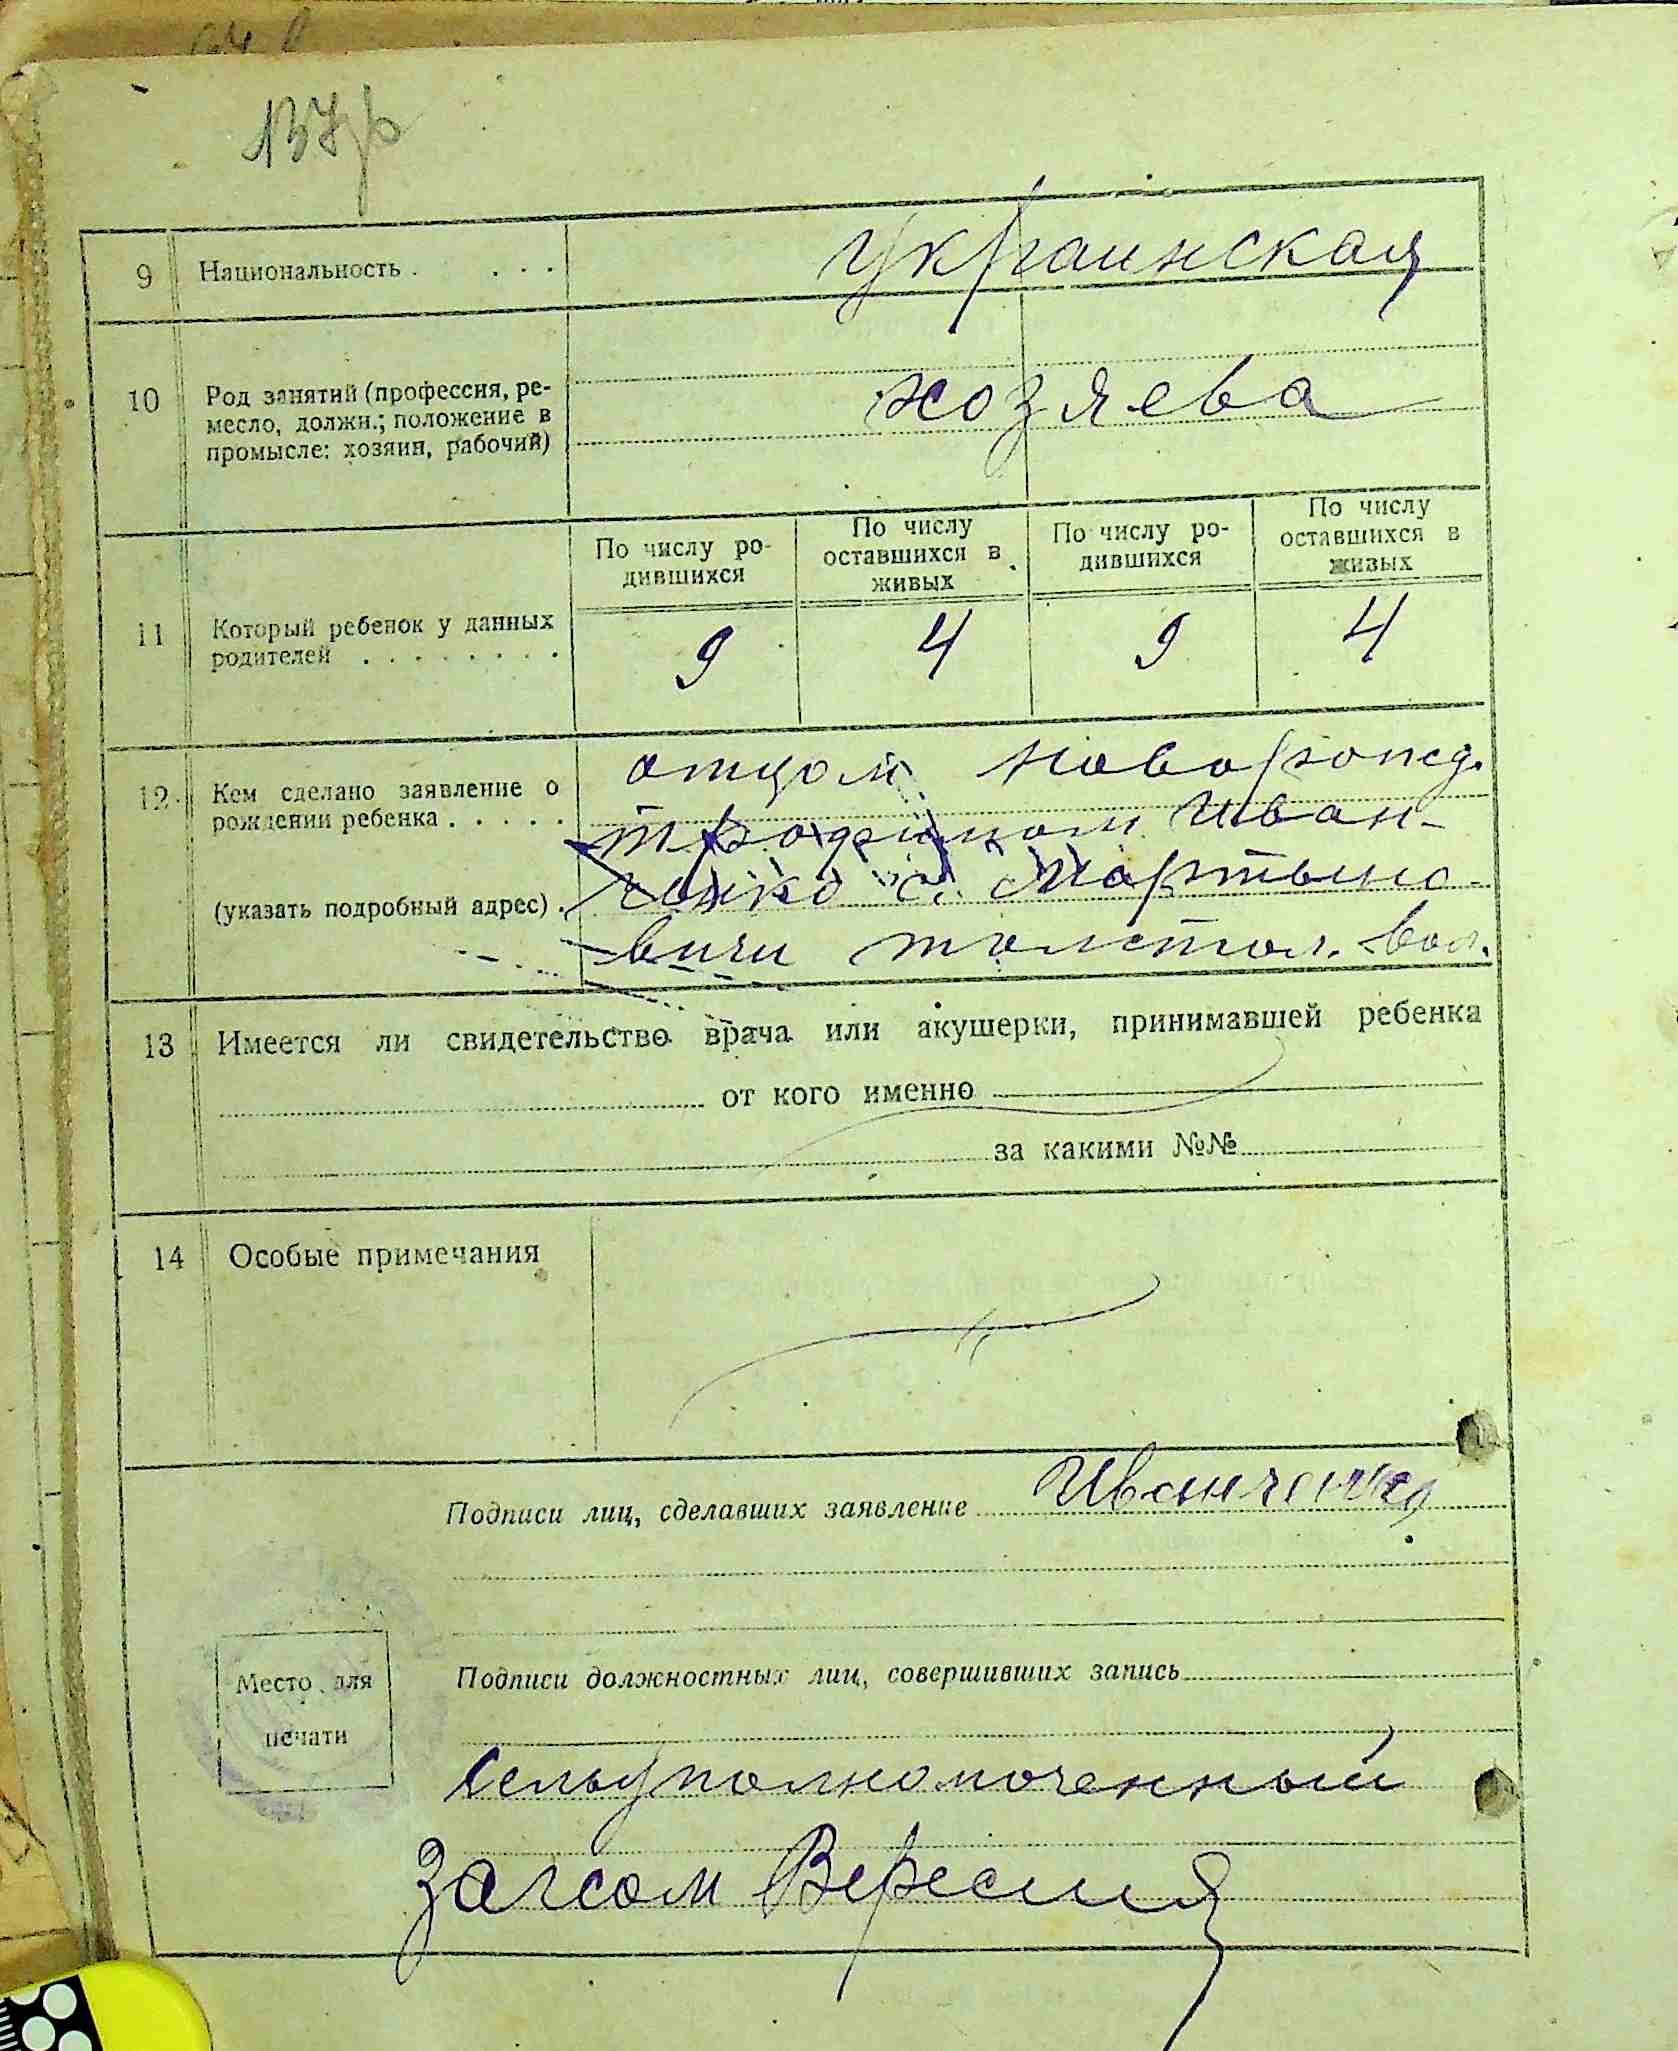 9 Национальность . . . . украинская
10 Род занятий (профессия, ре-
месло, должн.; положение в
промысле: хозяин, рабочий)
хозяева
11 Который ребенок у данных
родителей . . . . . . . .
По числу ро-
дившихся
По числу
оставшихся в
живых
По числу ро-
дившихся
По числу
оставшихся в
живых
9 4 9 4
12 Кем сделано заявление о
рождении ребенка . . . . .
(указать подробный адрес) .
отцом новорожд.
трофимом Иван-
ченко с. Мартыно-
вичи толстол. вол.
13 Имеется ли свидетельство врача или акушерки, принимавшей ребенка
от кого именно
за какими №№
14 Особые примечания
Подписи лиц, сделавших заявление Иванченко
Место для
печати
Подписи должностных лиц, совершивших запись
Сельуполномоченный
Загсом